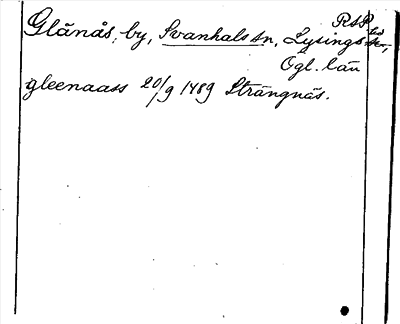 RAP
Glänås, by, Svanhals sn, Lysings hd,
Ögl. län
gleenaass 20/9 1489 Strängnäs.